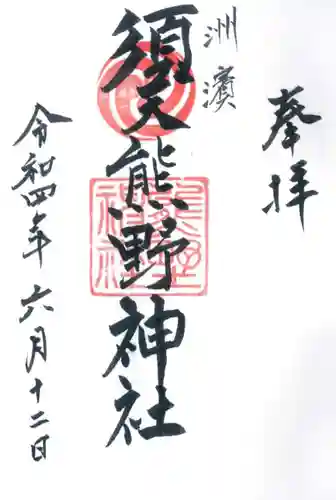 奉拝
洲濱
須天熊野神社
令和四年六月十二日